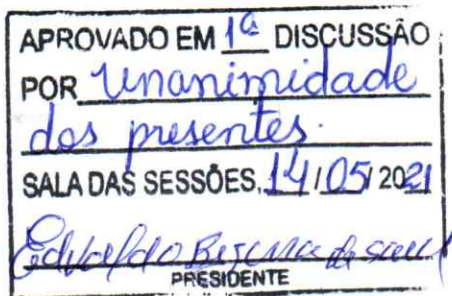 APROVADO EM 1ª DISCUSSÃO
POR Unanimidade
dos presentes.
SALA DAS SESSÕES, 14/05/2021
Edvaldo Bezerra de
PRESIDENTE